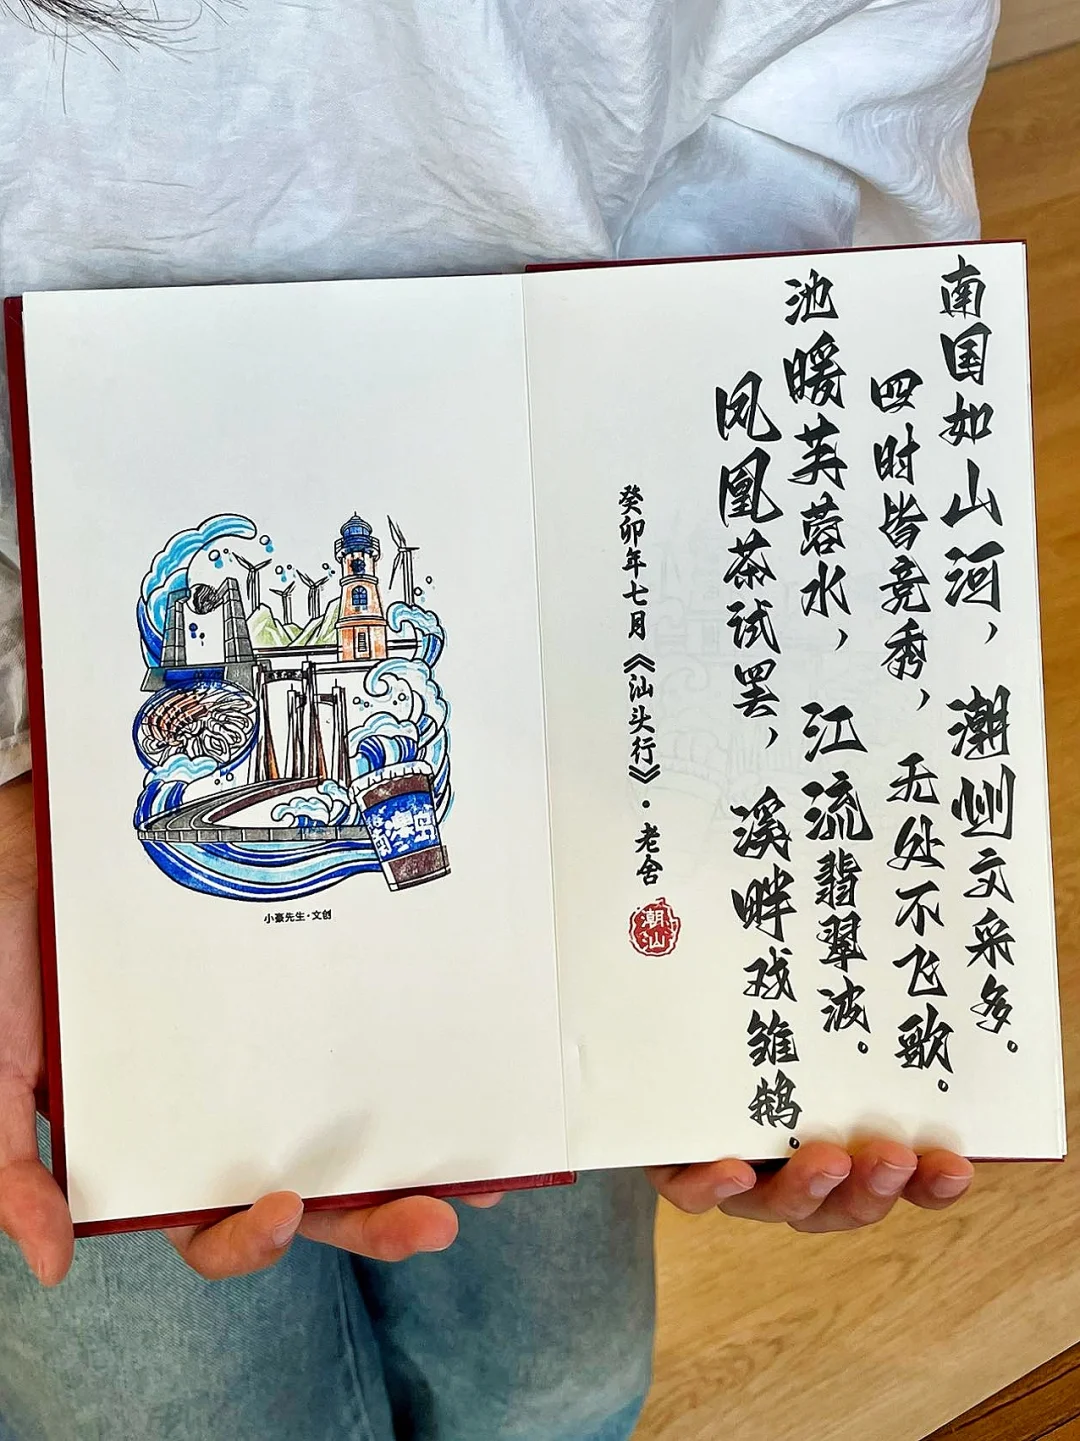 南国如山河，潮州文采多。
四时皆竞秀，无处不飞歌。
池暖芙蓉水，江流翡翠波。
凤凰茶试罢，溪畔戏雏鹅。
癸卯年七月《汕头行》·老舍
潮汕
南澳岛
小豪先生·文创